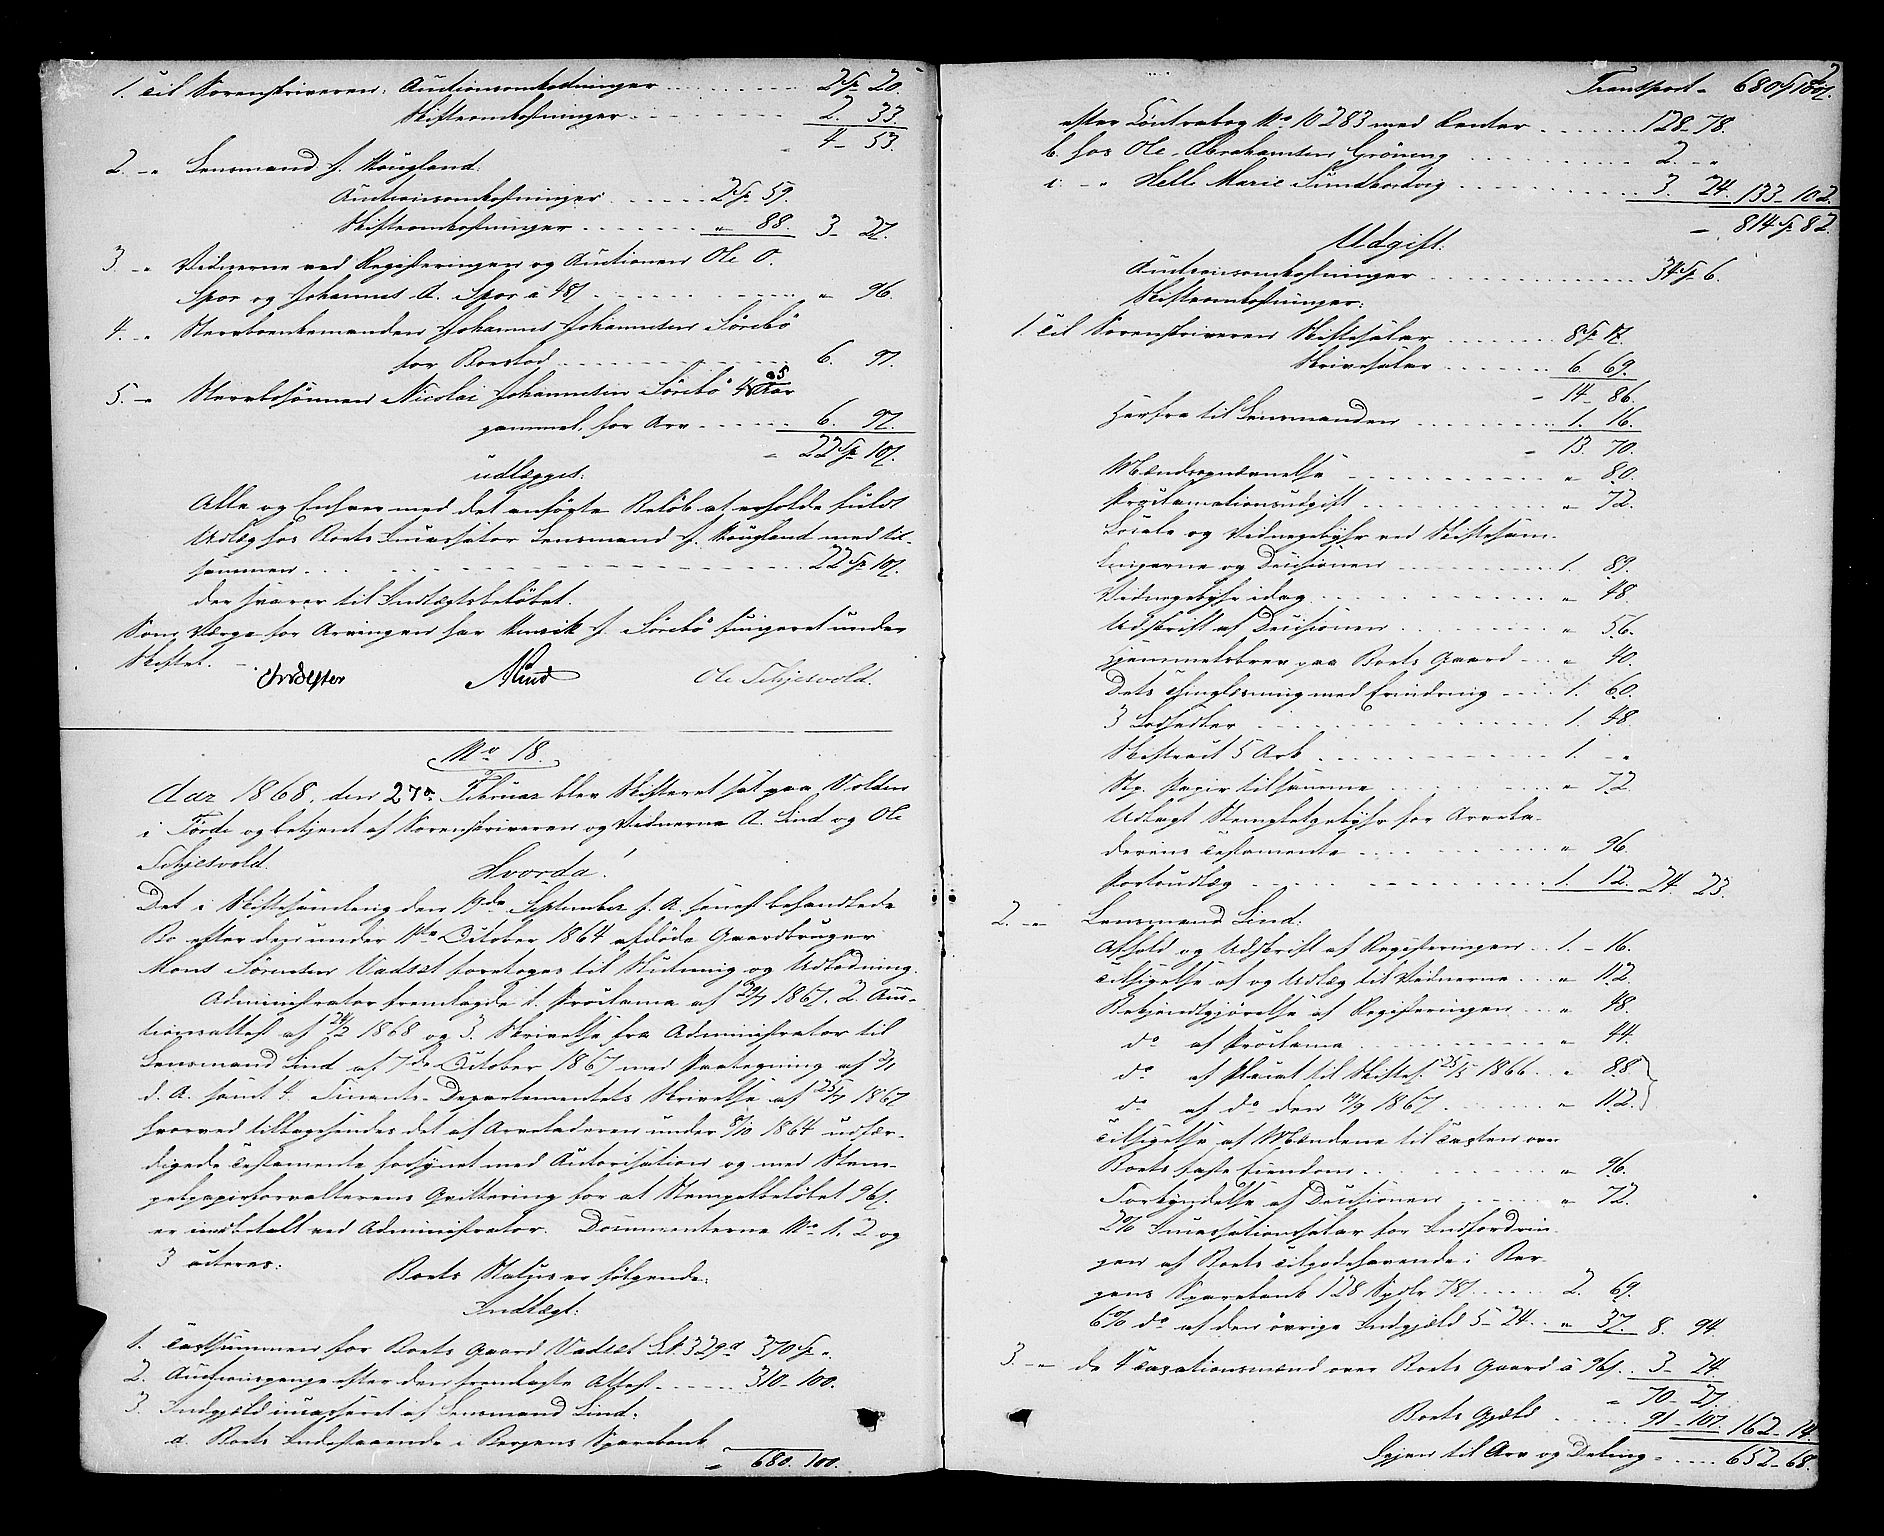 1. Til Sorenskriveren: Auctionsomkostninger . . . . . 2 Sp 20.
Skifteomkostninger . . . . . 2. 33.
4 - 53.
2. -"- Lensmand J. Hougland:
Auctionsomkostninger . . . 2 Sp 59.
Skifteomkostninger . . . . " 88. 3 - 27.
3. -"- Vidnerne ved Registeringen og Auctionen Ole O.
Spor og Johannes A. Spor à 48 s . . . . . " 96.
4. -"- Stervboenkemanden Johannes Johannesen Sörebö
for Boeslod . . . . . 6. 97.
5. -"- Stervbosönnen Nicolai Johannesen Sörebö Aar
gammel, for Arv . . . . . 6. 97.
" 22 Sp 107.
udlægges:
Alle og Enhver med det anförte Belöb at erholde fuldt
Udlæg hos Boets Incassator Lensmand J. Hougland med til-
sammen . . . . . 22 Sp 107.
der svarer til Indtægtsbelöbet.
Som Værge for Arvingen har Henrik J. Sörebö fungeret under
Skiftet. -
ALind Ole Schjesvold.
No 18.
Aar 1868, den 27de Februar blev Skifteret sat paa Volden
i Förde og betjent af Sorenskriveren og Vidnerne A. Lind og Ole
Schjesvold.
Hvorda!
Det i Skiftesamling den 19de September f. A. senest behandlede
Bo efter den under 11te October 1864 afdöde Gaardbruger
Mons Sörensen Vadset foretoges til Slutning og Udlodning.
Administrator fremlagde 1. Proclama af 29/7 1867. 2. Auc-
tionsattest af 24/2 1868 og 3. Skrivelse fra Administrator til
Lensmand Lind af 7de October 1867 med Paategning af 3/1
d. A. samt 4. Finants-Departementets Skrivelse af 25/7 1867
hvorved tilbagesendes det af Arveladeren under 8/10 1864 udfær-
digede Testamente forsynet med Autorisation og med Stem-
pelpapirforvalterens Qvittering for at Stempelbelöbet 96 s.
er indbetalt ved Administrator. Documenterne No 1, 2 og
3 acteres:
Boets Status er fölgende:
Indtægt:
1. Taxtsummen for Boets Gaard Vadset Lb. 329a 370 Sp ".
2. Auctionspenge efter den fremlagte Attest . . . . . 310 - 100.
3. Indgjæld incasseret af Lensmand Lind:
a. Boets Indestaaende i Bergens Sparebank
" 680. 100.
Transport " 680 Sp 100 s.
efter Contrabog No 10283 med Renter . . . . . 128 - 78.
b. hos Ole Abrahamsen Gröning . . . . . 2. - "
c. -"- Helle Marie Sundbotvig . . . . . 3. 24. 133 - 102.
" 814 Sp 82.
Udgift:
Auctionsomkostninger . . . . . 34 Sp 6.
Skifteomkostninger:
1. Til Sorenskriveren Skiftesalær . . . . . 8 Sp 17.
Skrivesalær . . . . . 6. 69.
" 14 - 86.
Herfra til Lensmanden . . . . . 1. 16.
" 13. 70.
Mændsopnævnelse . . . . . " 80.
Proclamationsudgift . . . . . " 72.
Locale og Vidnegebyhr ved Skiftesam-
lingerne og Decisionen . . . . . 1. 89.
Vidnegebyhr idag . . . . . " 48
Udskrift af Decisionen . . . . . " 56.
Hjemmelsbrev paa Boets Gaard . . . " 40.
Dets Thinglesning med Erindring . . . 1. 60.
3 Lodsedler . . . . . 1. 48.
Skifteact 5 Ark . . . . . 1. - "
Stp. papir til samme . . . . . " 72
Udlagt Stempletgebyhr for Arvela-
derens Testamente . . . . . " 96
Portoudlæg . . . . . 1. 12. 24. 23.
2. -"- Lensmand Lind:
Afhold og Udskrift af Registeringen . . 1. - 16.
Tilsigelse af og Udlæg til Vidnerne . . . " 112.
Bekjendtgjörelse af Registeringen . . . " 48.
do af Proclama . . . . . " 44.
do af Placat til Skiftes. 25/5 1866 . . " 88
do af do den 19/9 1867 . . . . . " 112.
Tilsigelse af Mændene til Taxten over
Boets faste Eiendom . . . . . " 96.
Forkyndelse af Decisionen . . . . . " 72.
2% Incassationssalær for Indfordrin-
gen af Boets Tilgodehavende i Ber-
gens Sparebank 128 Spdlr 78 s . . . . 2. 69.
6% do af den övrige Indgjæld 5-24. . . " 37. 8. 94.
3. -"- de 4 Taxationsmænd over Boets Gaard à 96 s. . . 3 - 24.
" 70 - 27.
Boets Gjæld . . . . . 91 - 107. 162 - 14.
Igjen til Arv og Deling . . . . . 652 - 68.